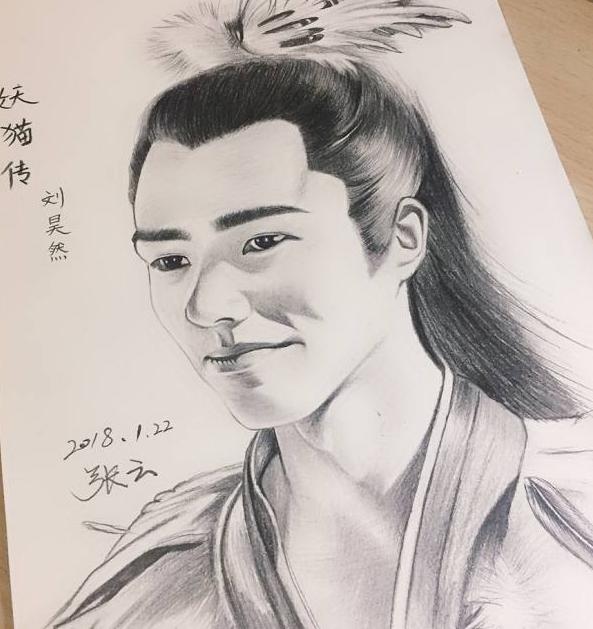 妖猫传
刘昊然
2018.1.22
张云